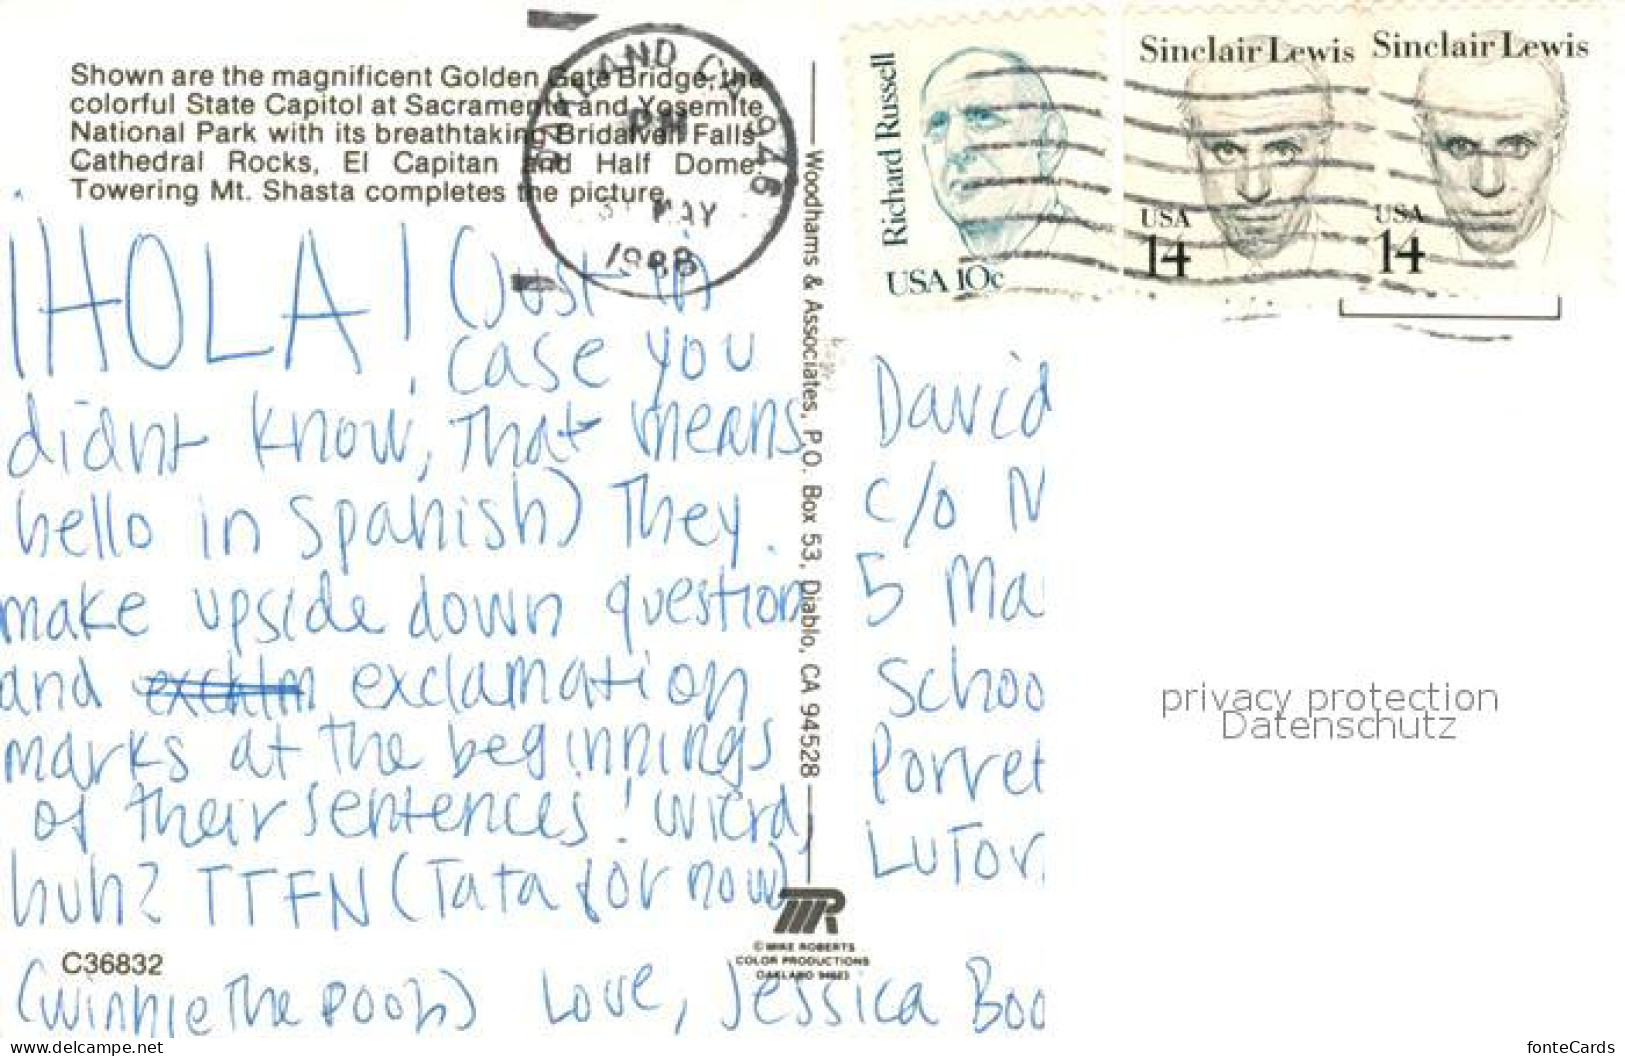 Shown are the magnificent Golden Gate Bridge, the
colorful State Capitol at Sacramento and Yosemite
National Park with its breathtaking Bridalveil Falls,
Cathedral Rocks, El Capitan and Half Dome.
Towering Mt. Shasta completes the picture.
OAKLAND CA 946
PM
MAY
1988
Richard Russell
USA 10c
Sinclair Lewis
USA
14
Sinclair Lewis
USA
14
¡HOLA! (Just in
case you
didnt know, that means
hello in Spanish) They
make upside down question
and exclam exclamation
marks at the beginnings
of their sentences! Wierd,
huh? TTFN (Tata for now)
(Winnie The Pooh) Love, Jessica Boo
Woodhams & Associates, P.O. Box 53, Diablo, CA 94528
David
c/o
5 Ma
Schoo
Porret
LuTor
privacy protection
Datenschutz
C36832
© MIKE ROBERTS
COLOR PRODUCTIONS
OAKLAND 94623
www.delcampe.net
fonteCards